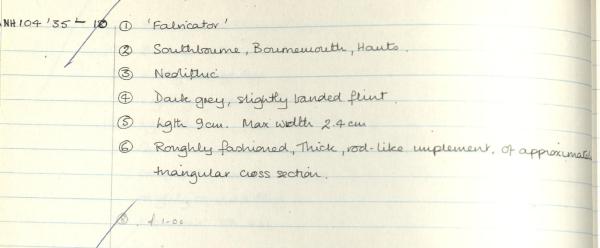 NH104 '35 - 10 ① 'Fabricator'
② Southbourne, Bournemouth, Hants.
③ Neolithic
④ Dark grey, slightly banded flint.
⑤ Lgth 9cm. Max width 2.4cm
⑥ Roughly fashioned, thick, rod-like implement, of approximate
triangular cross section.
£1-00